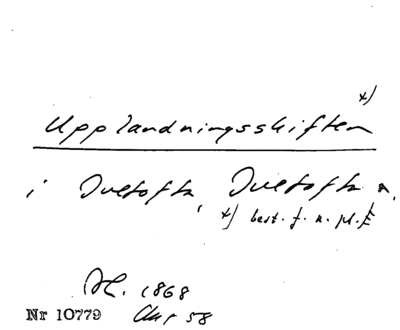 x)
Upplandningsskiften
i Ivetofta, Ivetofta s.
x) best. f. n. pl.
AE. 1868
Nr 10779 Akt 58